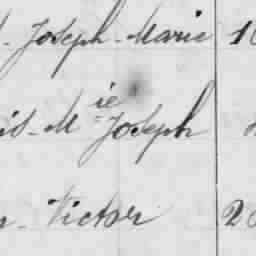 Joseph-Marie 1
is-Mie Joseph
Victor 2